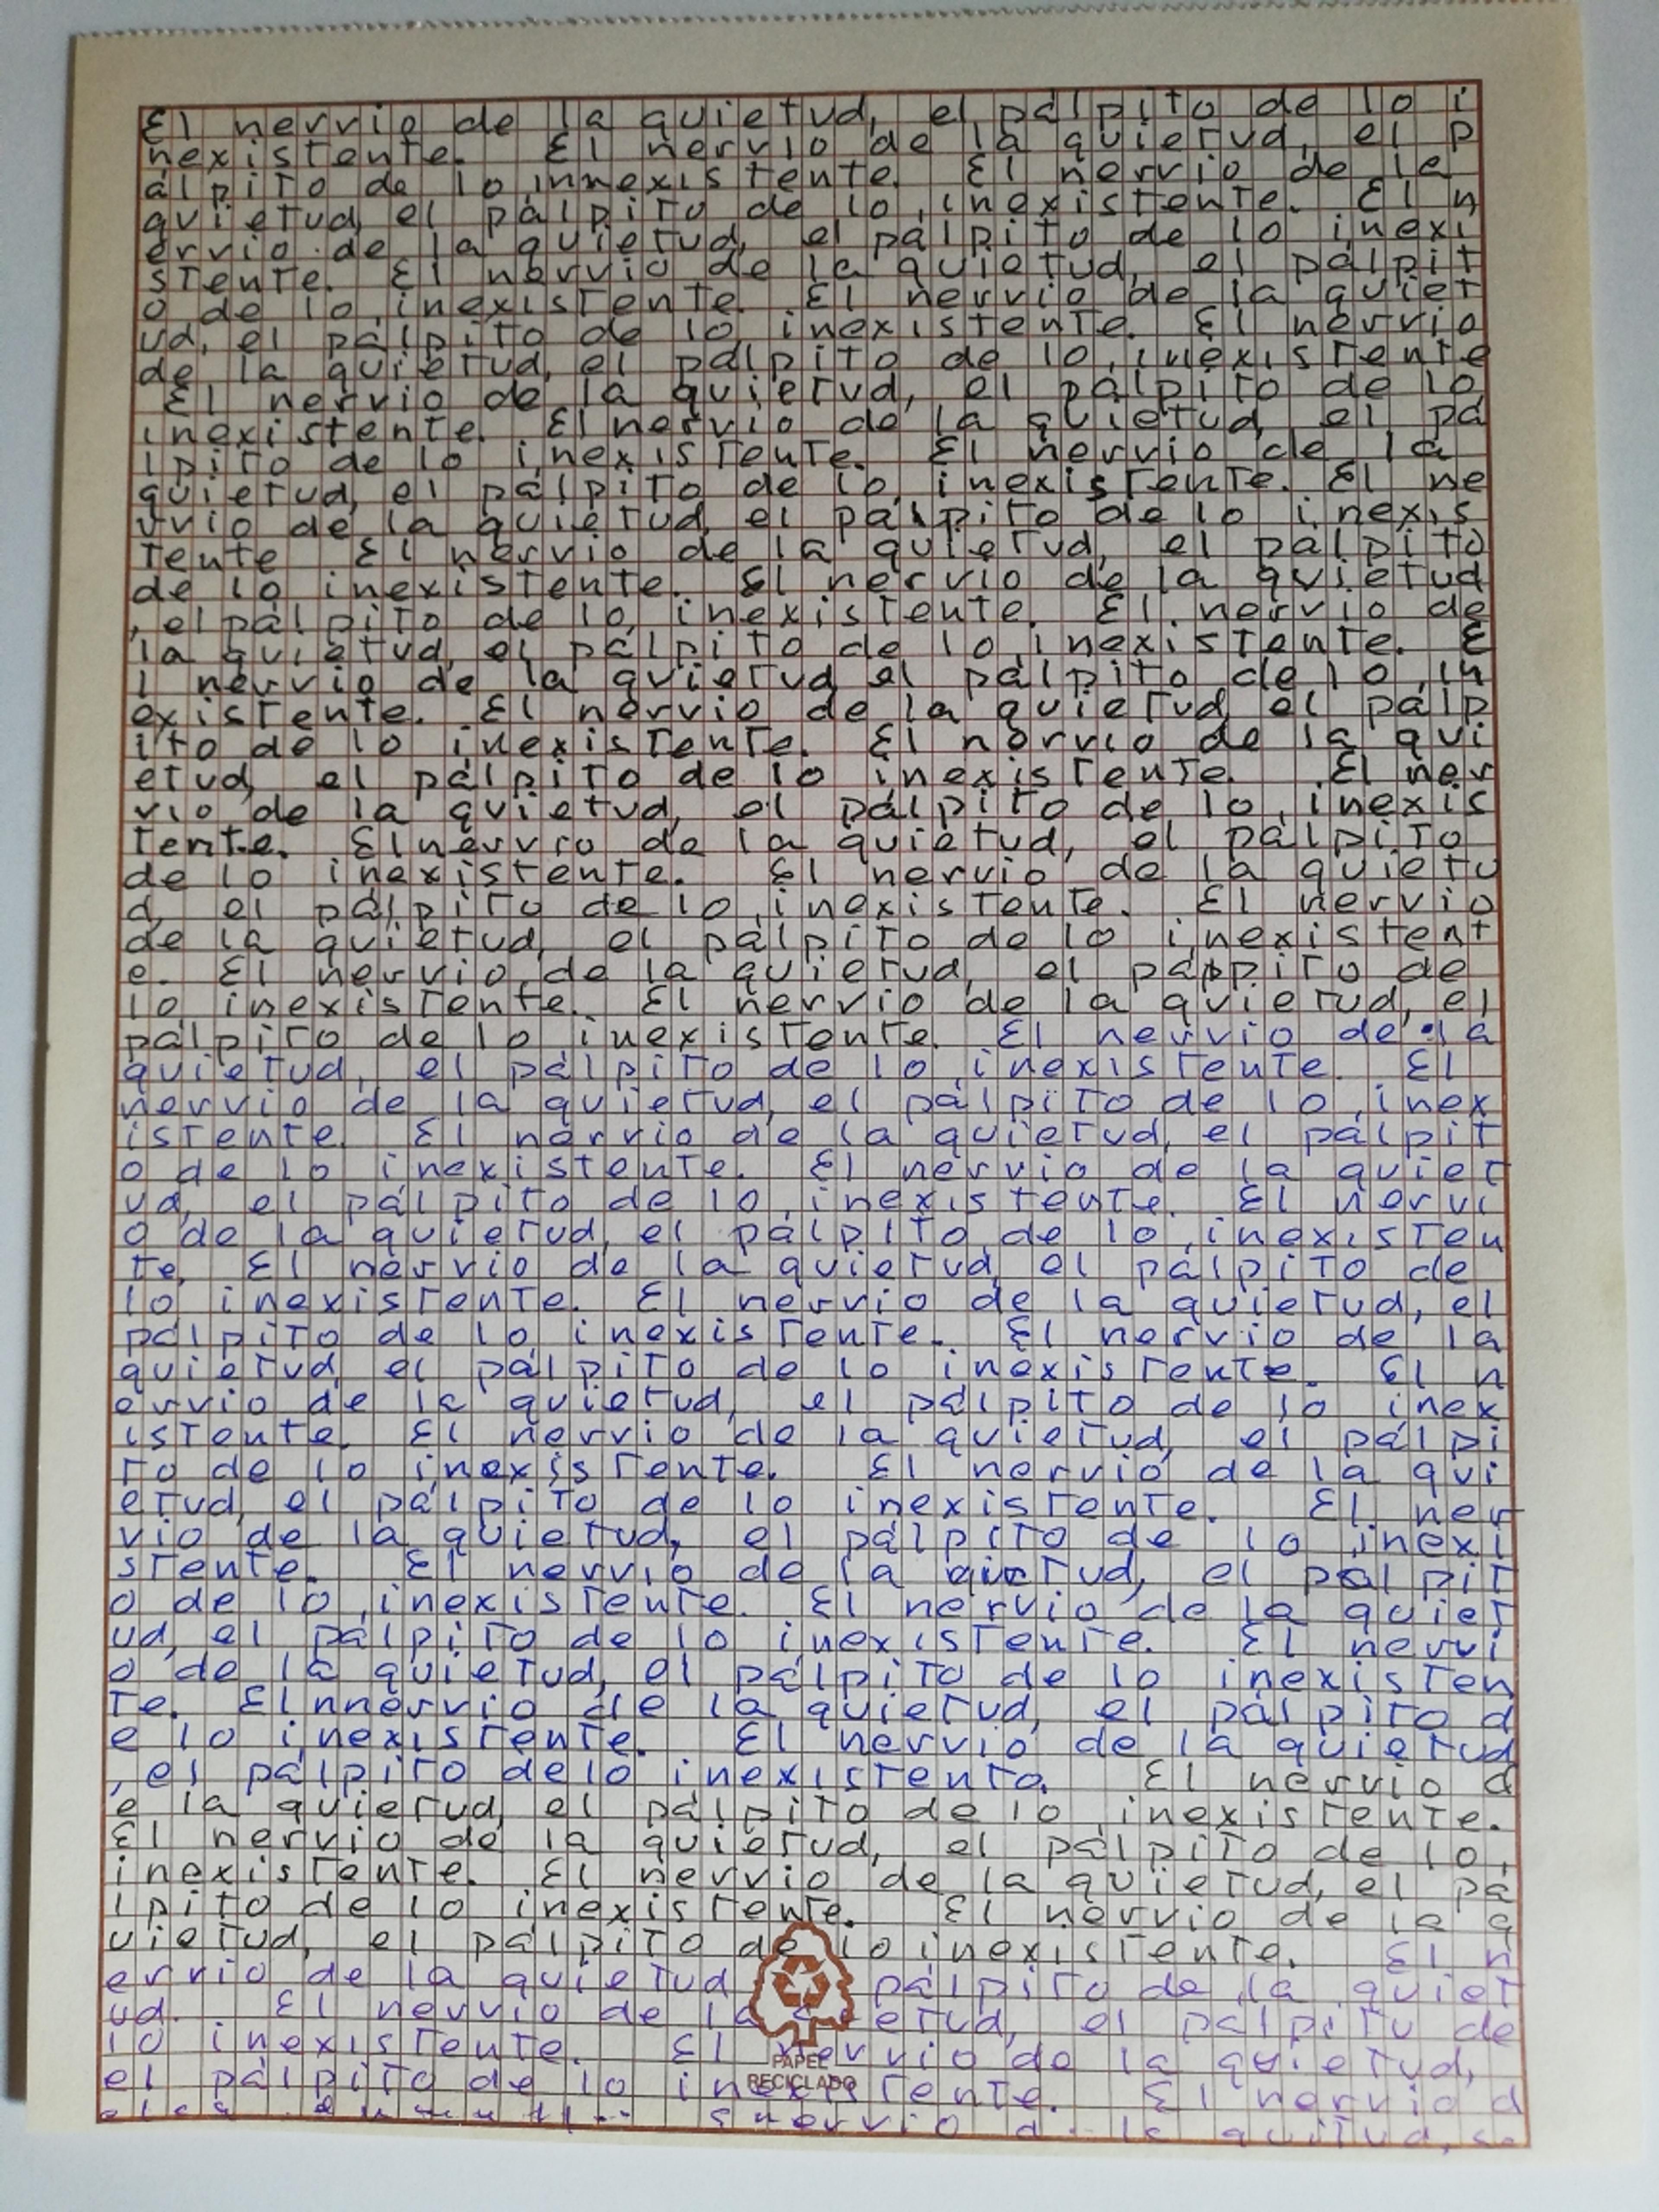 El nervio de la quietud, el pálpito de lo i
nexistente. El nervio de la quietud, el p
álpito de lo innexistente. El nervio de la
quietud, el pálpito de lo inexistente. El n
ervio de la quietud, el pálpito de lo inexi
stente. El nervio de la quietud, el pálpit
o de lo inexistente. El nervio de la quiet
ud, el pálpito de lo inexistente. El nervio
de la quietud, el pálpito de lo inexistente
El nervio de la quietud, el pálpito de lo
inexistente. El nervio de la quietud, el pá
lpito de lo inexistente. El nervio de la
quietud, el pálpito de lo inexistente. El ne
rvio de la quietud, el pálpito de lo inexis
tente El nervio de la quietud, el pálpito
de lo inexistente. El nervio de la quietud
, el pálpito de lo inexistente. El nervio de
la quietud, el pálpito de lo inexistente. E
l nervio de la quietud el pálpito de lo in
existente. El nervio de la quietud el pálp
ito de lo inexistente. El nervio de la qui
etud, el pálpito de lo inexistente. El ner
vio de la quietud, el pálpito de lo inexis
tente. El nervio de la quietud, el pálpito
de lo inexistente. El nervio de la quietu
d, el pálpito de lo inexistente. El nervio
de la quietud, el pálpito de lo inexistent
e. El nervio de la quietud, el páppito de
lo inexistente. El nervio de la quietud, el
pálpito de lo inexistente. El nervio de la
quietud, el pálpito de lo inexistente. El
nervio de la quietud, el pálpito de lo inex
istente. El nervio de la quietud, el pálpit
o de lo inexistente. El nervio de la quiet
ud, el pálpito de lo inexistente. El nervi
o de la quietud, el pálpito de lo inexisten
te. El nervio de la quietud, el pálpito de
lo inexistente. El nervio de la quietud, el
pálpito de lo inexistente. El nervio de la
quietud, el pálpito de lo inexistente. El n
ervio de la quietud, el pálpito de lo inex
istente. El nervio de la quietud, el pálpi
to de lo inexistente. El nervio de la qui
etud, el pálpito de lo inexistente. El ner
vio de la quietud, el pálpito de lo inexi
stente. El nervio de la quietud, el pálpit
o de lo inexistente. El nervio de la quiet
ud, el pálpito de lo inexistente. El nervi
o de la quietud, el pálpito de lo inexisten
te. El nnervio de la quietud, el pálpito d
e lo inexistente. El nervio de la quietud
, el pálpito de lo inexistente. El nervio d
e la quietud, el pálpito de lo inexistente.
El nervio de la quietud, el pálpito de lo
inexistente. El nervio de la quietud, el pá
lpito de lo inexistente. El nervio de la q
uietud, el pálpito de lo inexistente. El n
ervio de la quietud pálpito de la quiet
ud. El nervio de la etud, el pálpito de
lo inexistente. El nervio de la quietud,
el pálpito de lo inexistente. El nervio d
PAPEL
RECICLADO